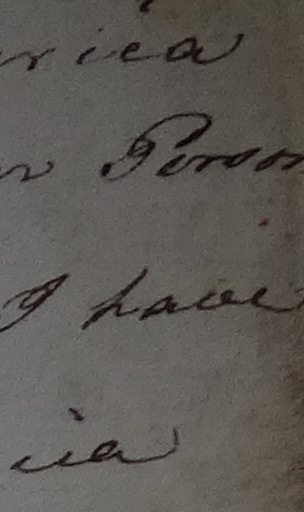 rica
r Person
I have
ia